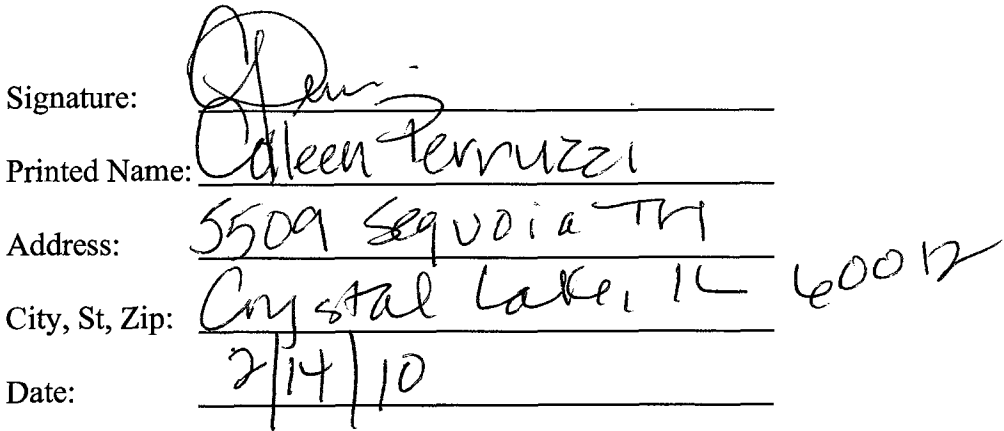 Signature:
Printed Name: Colleen Perruzzi
Address: 5509 Sequoia Trl
City, St, Zip: Crystal Lake, IL 60012
Date: 2/14/10